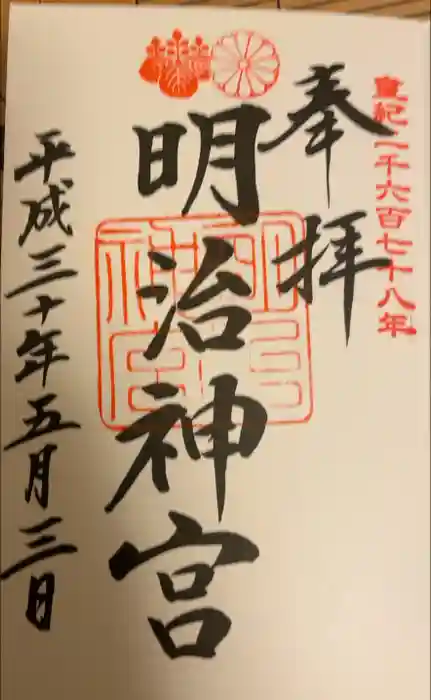 皇紀二千六百七十八年
奉拝
明治神宮
明治神宮
平成三十年五月三日